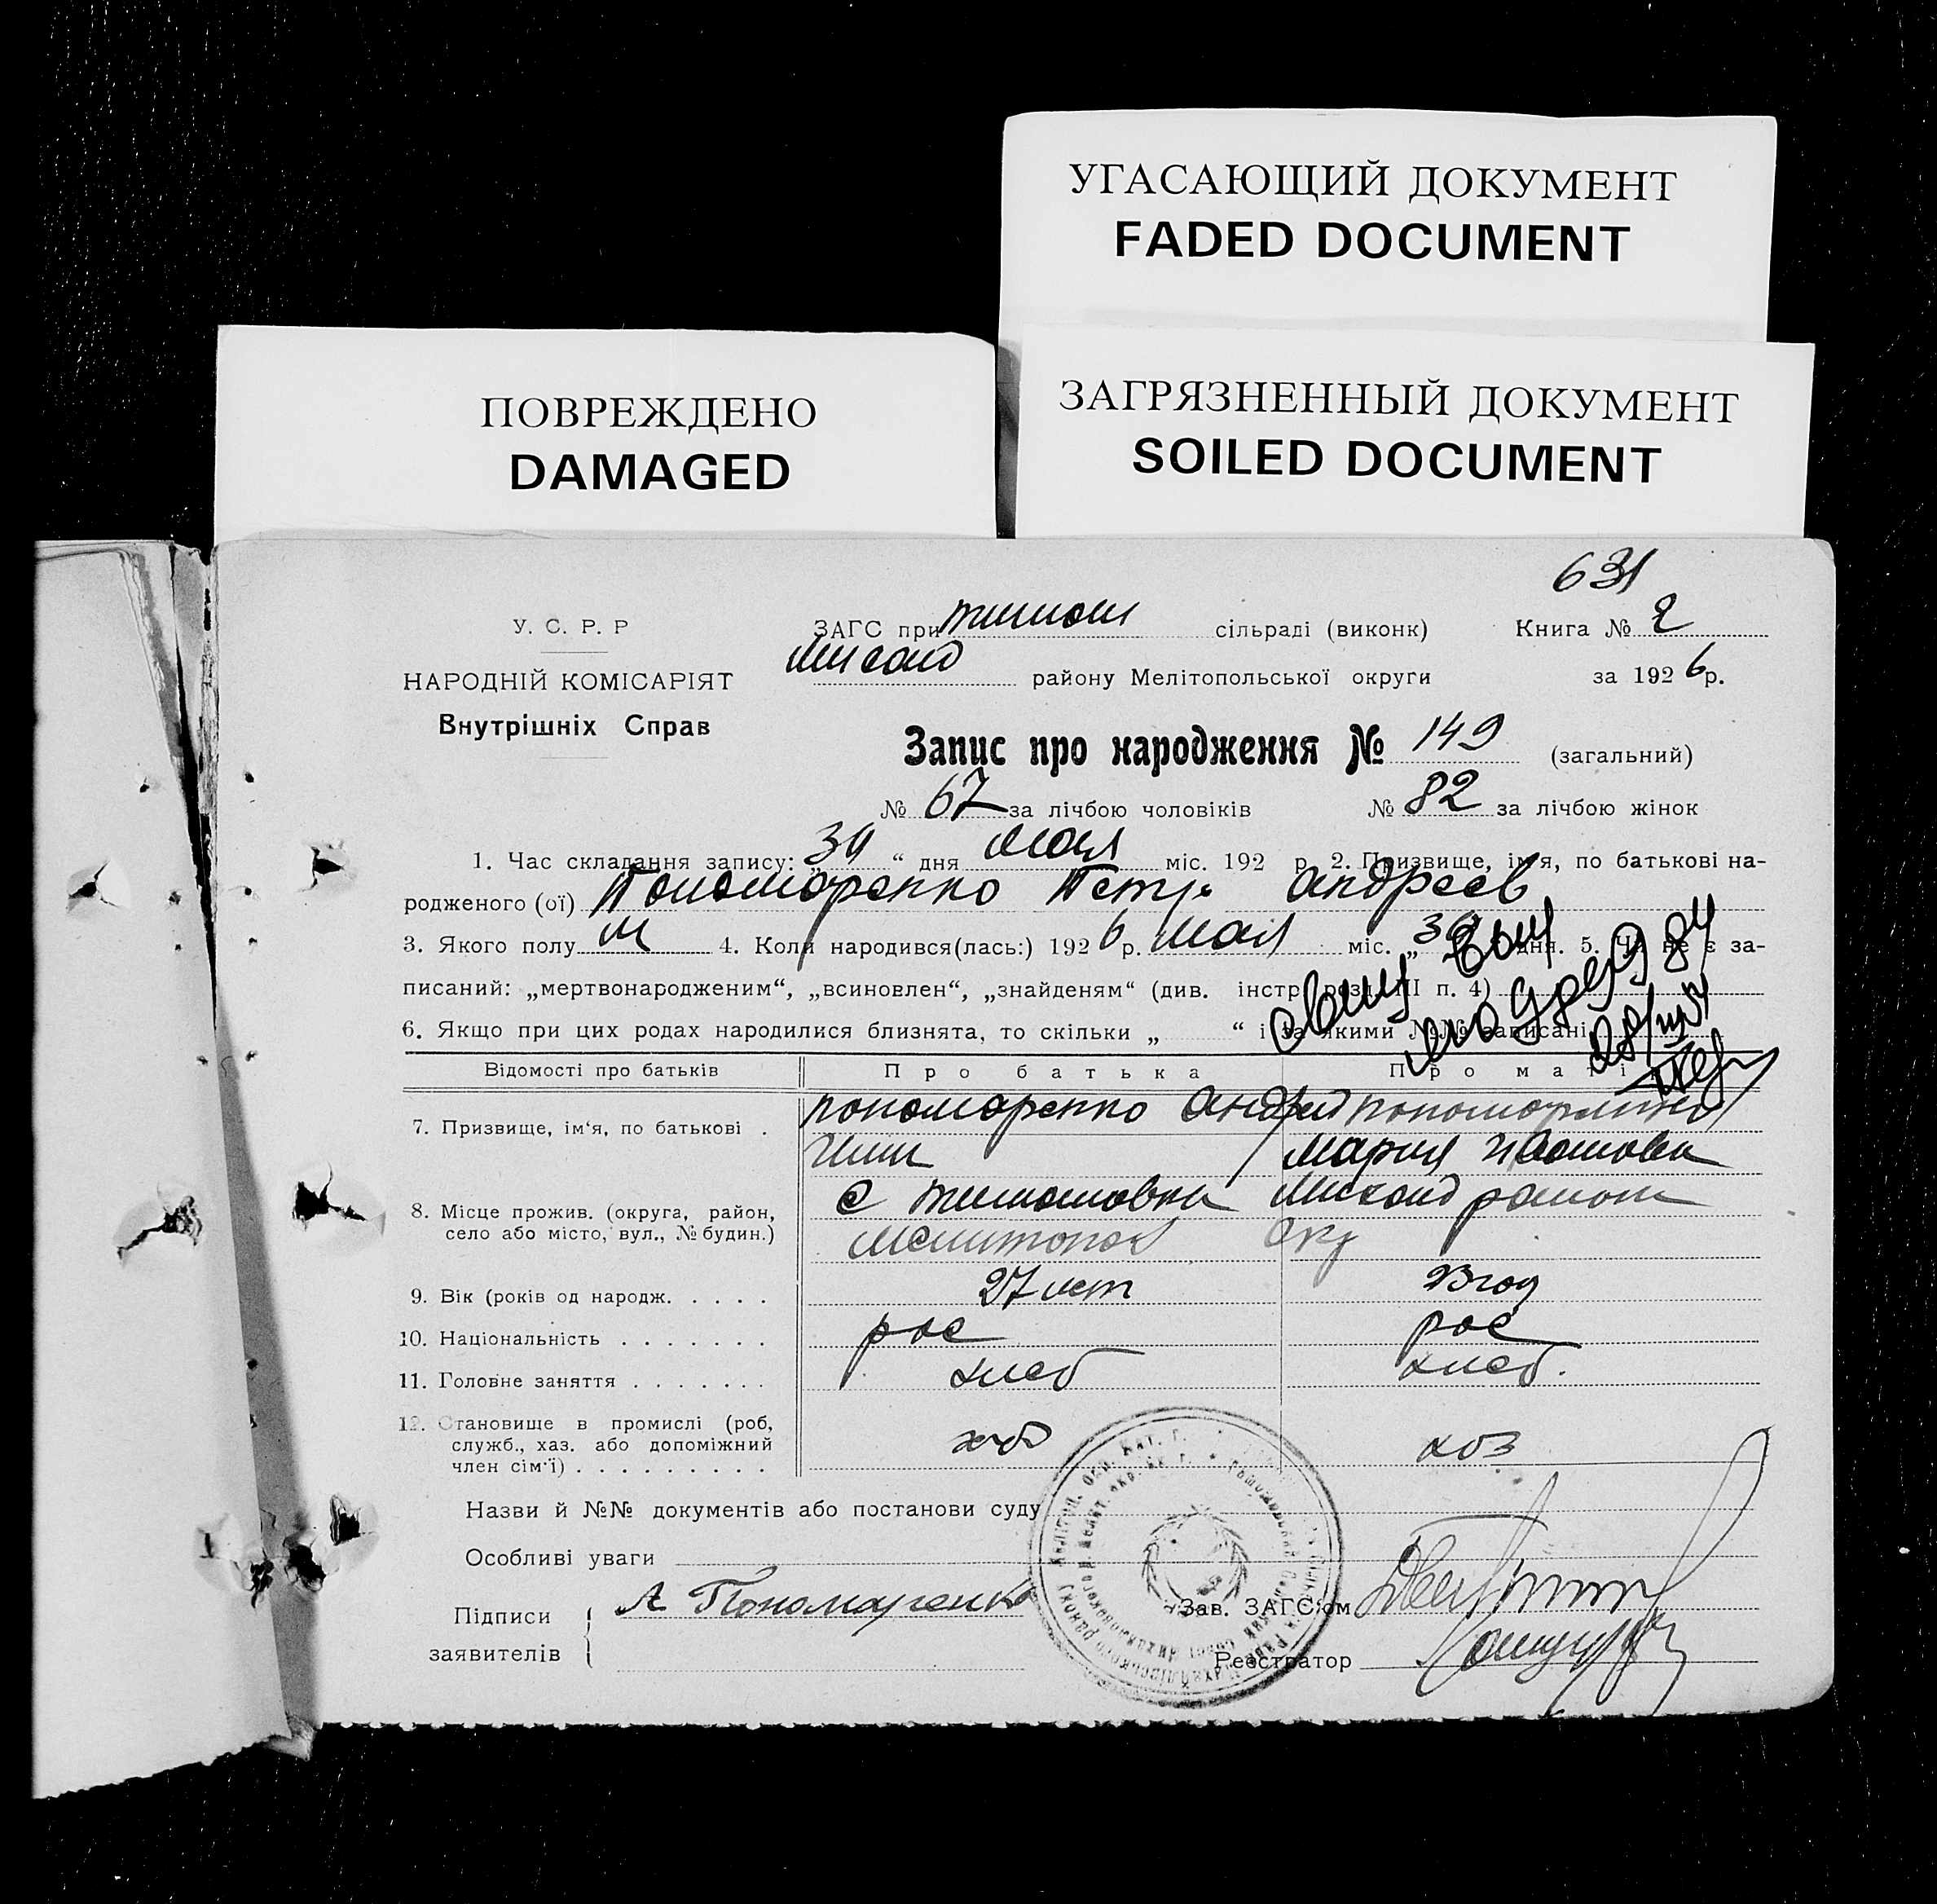 УГАСАЮЩИЙ ДОКУМЕНТ
FADED DOCUMENT
ПОВРЕЖДЕНО
DAMAGED
ЗАГРЯЗНЕННЫЙ ДОКУМЕНТ
SOILED DOCUMENT
631
У. С. Р. Р
НАРОДНІЙ КОМІСАРІЯТ
Внутрішніх Справ
ЗАГС при тимош сільраді (виконк) Книга № 2
району Мелітопольської округи за 1926 р.
Запис про народження № 149 (загальний)
№ 67 за лічбою чоловіків № 82 за лічбою жінок
1. Час складання запису: „ “ дня мая міс. 192 р. 2. Призвище, ім'я, по батькові на-
родженого (ої) Пономаренко Петр Андреев
3. Якого полу м 4. Коли народився(лась:) 1926 р. мая міс. „ дня. 5. Чи не є за-
писаний: „мертвонародженим“, „всиновлен“, „знайденям“ (див. інстр. розд. III п. 4)
6. Якщо при цих родах народилися близнята, то скільки „ “ і за якими №№ записані
Відомості про батьків Про батька Про матір
7. Призвище, ім'я, по батькові . пономаренко Андрей
Мария
8. Місце прожив. (округа, район, с тимошовка
село або місто, вул., № будин.) Окр
9. Вік (років од народж. . . . . 27 лет 23 год
10. Національність . . . . . . . рос рос
11. Головне заняття . . . . . . . хлеб хлеб.
12. Становище в промислі (роб,
служб., хаз. або допоміжний хоз
член сім'ї) . . . . . . . . .
Назви й №№ документів або постанови суду
Особливі уваги
Підписи А Пономаренко Зав. ЗАГС'ом
заявителів Реєстратор